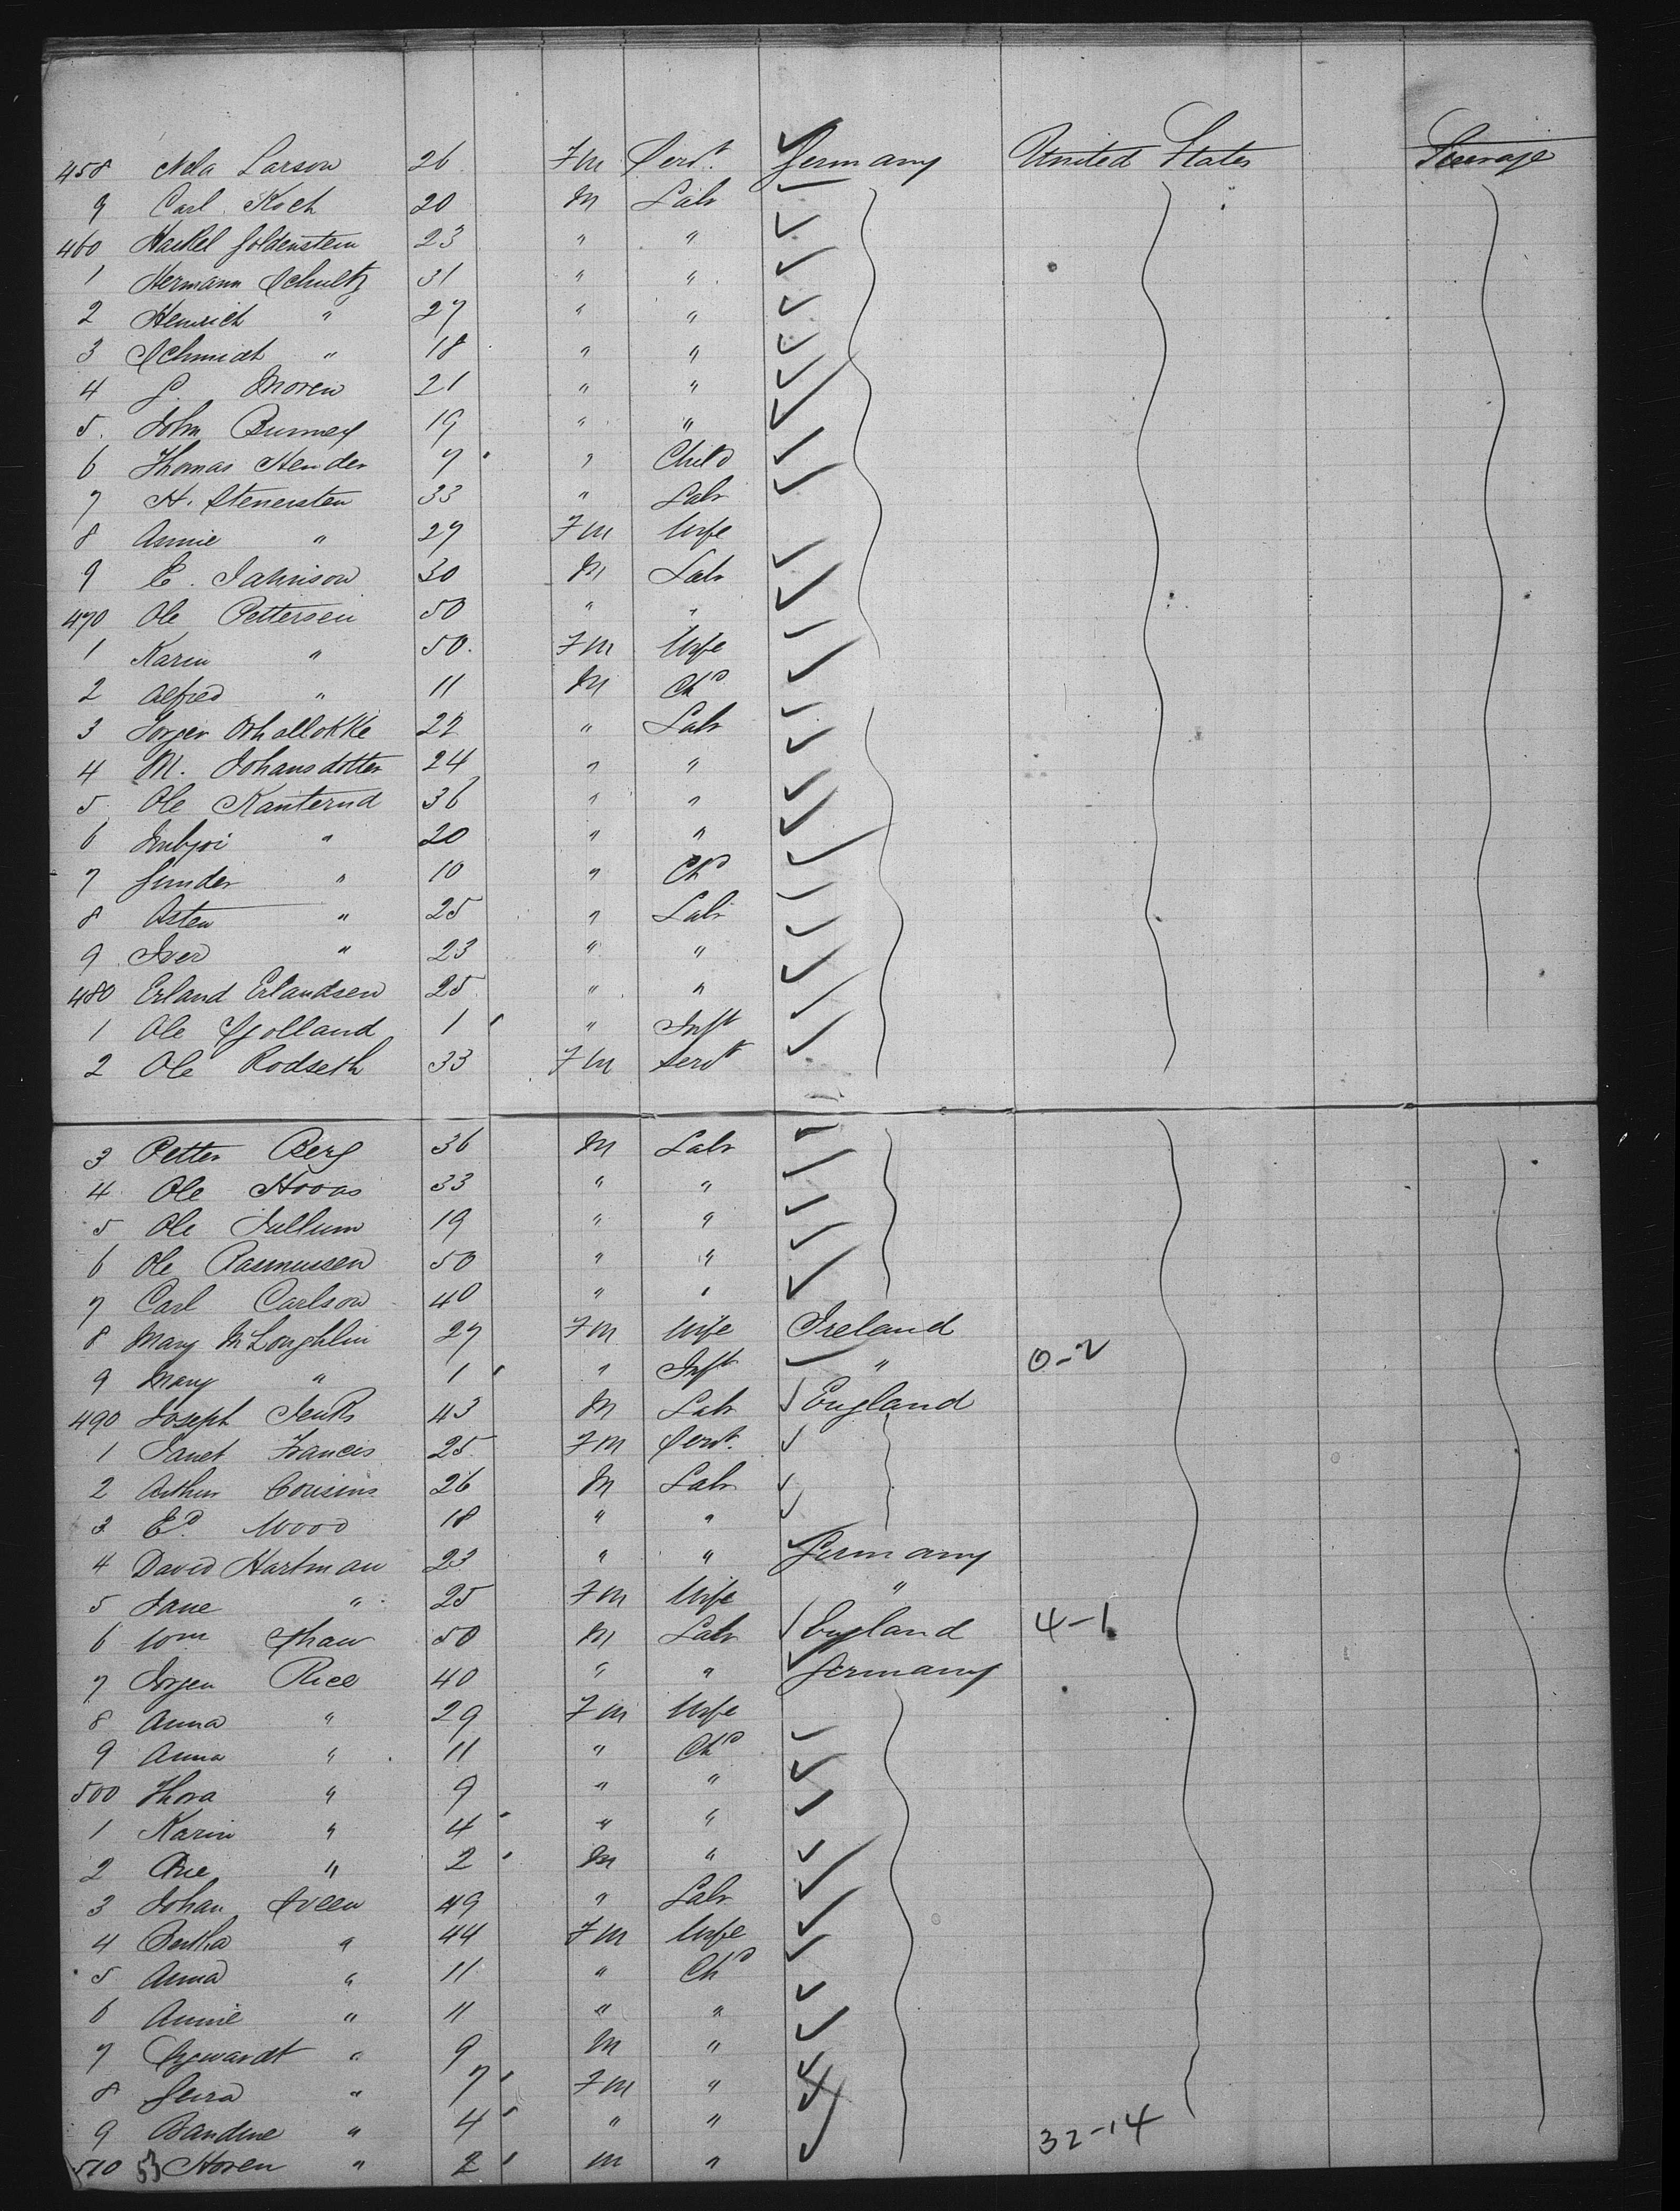 458 Nela Larson 26 Fm Servt. Germany United States Steerage
9 Carl Koch 20 M Labr
460 Haskel Goldenstein 23 " "
1 Hermann Schultz 31 " "
2 Henrich " 27 " "
3 Schmidt " 18 " "
4 J. Moren 21 " "
5. John Burney 19 " "
6 Thomas Hender 7 " Child
7 H. Stenersten 33 " Labr
8 Annie " 27 Fm Wife
9 E. Jahnison 30 M Labr
470 Ole Pettersen 50 " "
1 Karen " 50. Fm Wife
2 Alfred " 11 M Chd
3 Jorgen 22 " Labr
4 M. Johansdotter 24 " "
5 Ole Kanterud 36 " "
6 " 20 " "
7 Gunder " 10 " Chd
8 Osten " 25 " Labr
9 Iver " 23 " "
480 Erland Erlandsen 25 " "
1 Ole 1 " Inft
2 Ole Rodseth 33 Fm Servt
3 Petter Berg 36 M Labr
4 Ole Hovas 33 " "
5 Ole Jullum 19 " "
6 Ole Rasmussen 50 " "
7 Carl Carlson 40 " "
8 Mary McLoughlin 27 Fm Wife Ireland
9 Mary " 1 " Inft " 0-2
490 Joseph Jenks 43 M Labr England
1 Janet Francis 25 Fm Servt.
2 Arthur Cousins 26 M Labr
3 Ed. Wood 18 " "
4 David Hartman 23 " " Germany
5 Jane " 25 Fm Wife "
6 Wm Shaw 50 M Labr England 4-1
7 Jorgen Rice 40 " " Germany
8 Anna " 29 Fm Wife
9 Anna " 11 " Chd
500 Thora " 9 " "
1 Karin " 4 " "
2 " 2 M "
3 Johan Sveen 49 " Labr
4 Bertha " 44 Fm Wife
5 Anna " 11 " Chd
6 Annie " 11 " "
7 " 9 M "
8 " 7 Fm "
9 Bandine " 4 " " 32-14
510 53 Horen " 2 M "